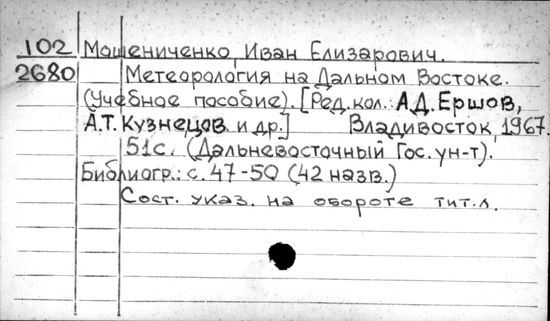 102 Мошениченко, Иван Елизарович.
2680 Метеорология на Дальном Востоке.
(Учебное пособие). [Ред.кол.: А.Д. Ершов,
А.Т. Кузнецов и др.] Владивосток, 1967.
51с. (Дальневосточный Гос. ун-т).
Библиогр.: с. 47-50 (42 назв.)
Сост. указ. на обороте тит.л.